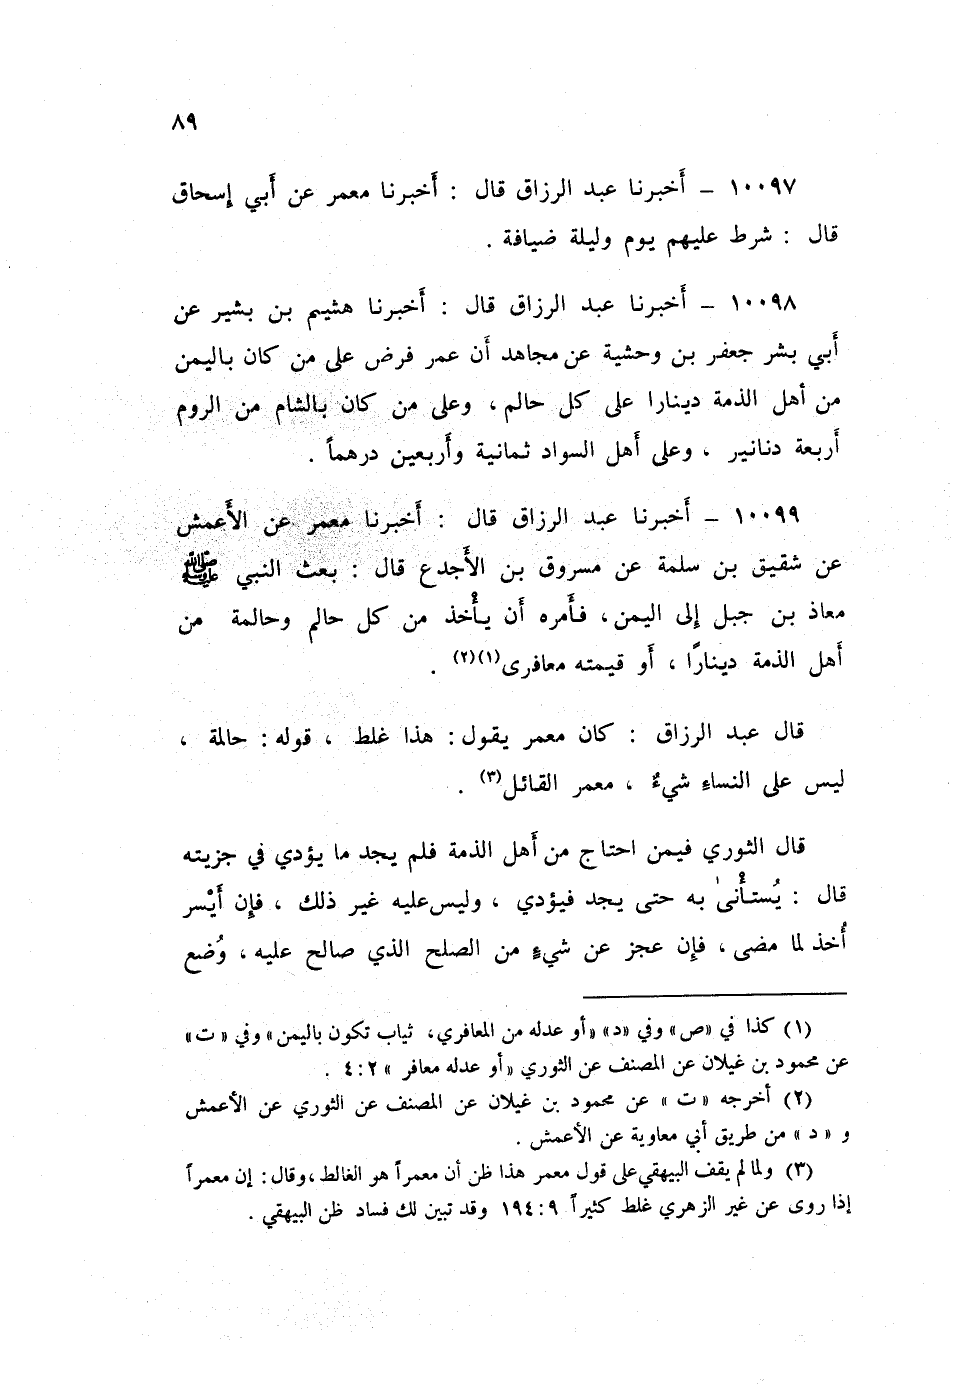 ٨٩
١٠٠٩٧ – أَخبرنا عبد الرزاق قال : أَخبرنا معمر عن أَبي إسحاق
قال : شرط عليهم يوم وليلة ضيافة .
١٠٠٩٨ – أَخبرنا عبد الرزاق قال : أَخبرنا هشيم بن بشير عن
أَبي بشر جعفر بن وحشية عن مجاهد أَن عمر فرض على من كان باليمن
من أهل الذمة دينارا على كل حالم ، وعلى من كان بالشام من الروم
أَربعة دنانير ، وعلى أَهل السواد ثمانية وأَربعين درهماً .
١٠٠٩٩ – أَخبرنا عبد الرزاق قال : أَخبرنا معمر عن الأَعمش
عن شقيق بن سلمة عن مسروق بن الأَجدع قال : بعث النبي ﷺ
معاذ بن جبل إلى اليمن ، فأَمره أَن يأْخذ من كل حالم وحالمة من
أَهل الذمة دينارًا ، أَو قيمته معافرى(١)(٢) .
قال عبد الرزاق : كان معمر يقول : هذا غلط ، قوله : حالمة ،
ليس على النساءِ شيءٌ ، معمر القائل(٣) .
قال الثوري فيمن احتاج من أَهل الذمة فلم يجد ما يؤدي في جزيته
قال : يُستأْنىٰ به حتى يجد فيؤدي ، وليس عليه غير ذلك ، فإن أَيْسر
أُخذ لما مضى ، فإن عجز عن شيءٍ من الصلح الذي صالح عليه ، وُضع
(١) كذا في «ص» وفي «د» «أو عدله من المعافري، ثياب تكون باليمن» وفي «ت»
عن محمود بن غيلان عن المصنف عن الثوري «أو عدله معافر » ٢ : ٤ .
(٢) أخرجه «ت» عن محمود بن غيلان عن المصنف عن الثوري عن الأعمش
و «د» من طريق أبي معاوية عن الأعمش .
(٣) ولما لم يقف البيهقي على قول معمر هذا ظن أن معمراً هو الغالط ، وقال : إن معمراً
إذا روى عن غير الزهري غلط كثيراً ٩ : ١٩٤ وقد تبين لك فساد ظن البيهقي .